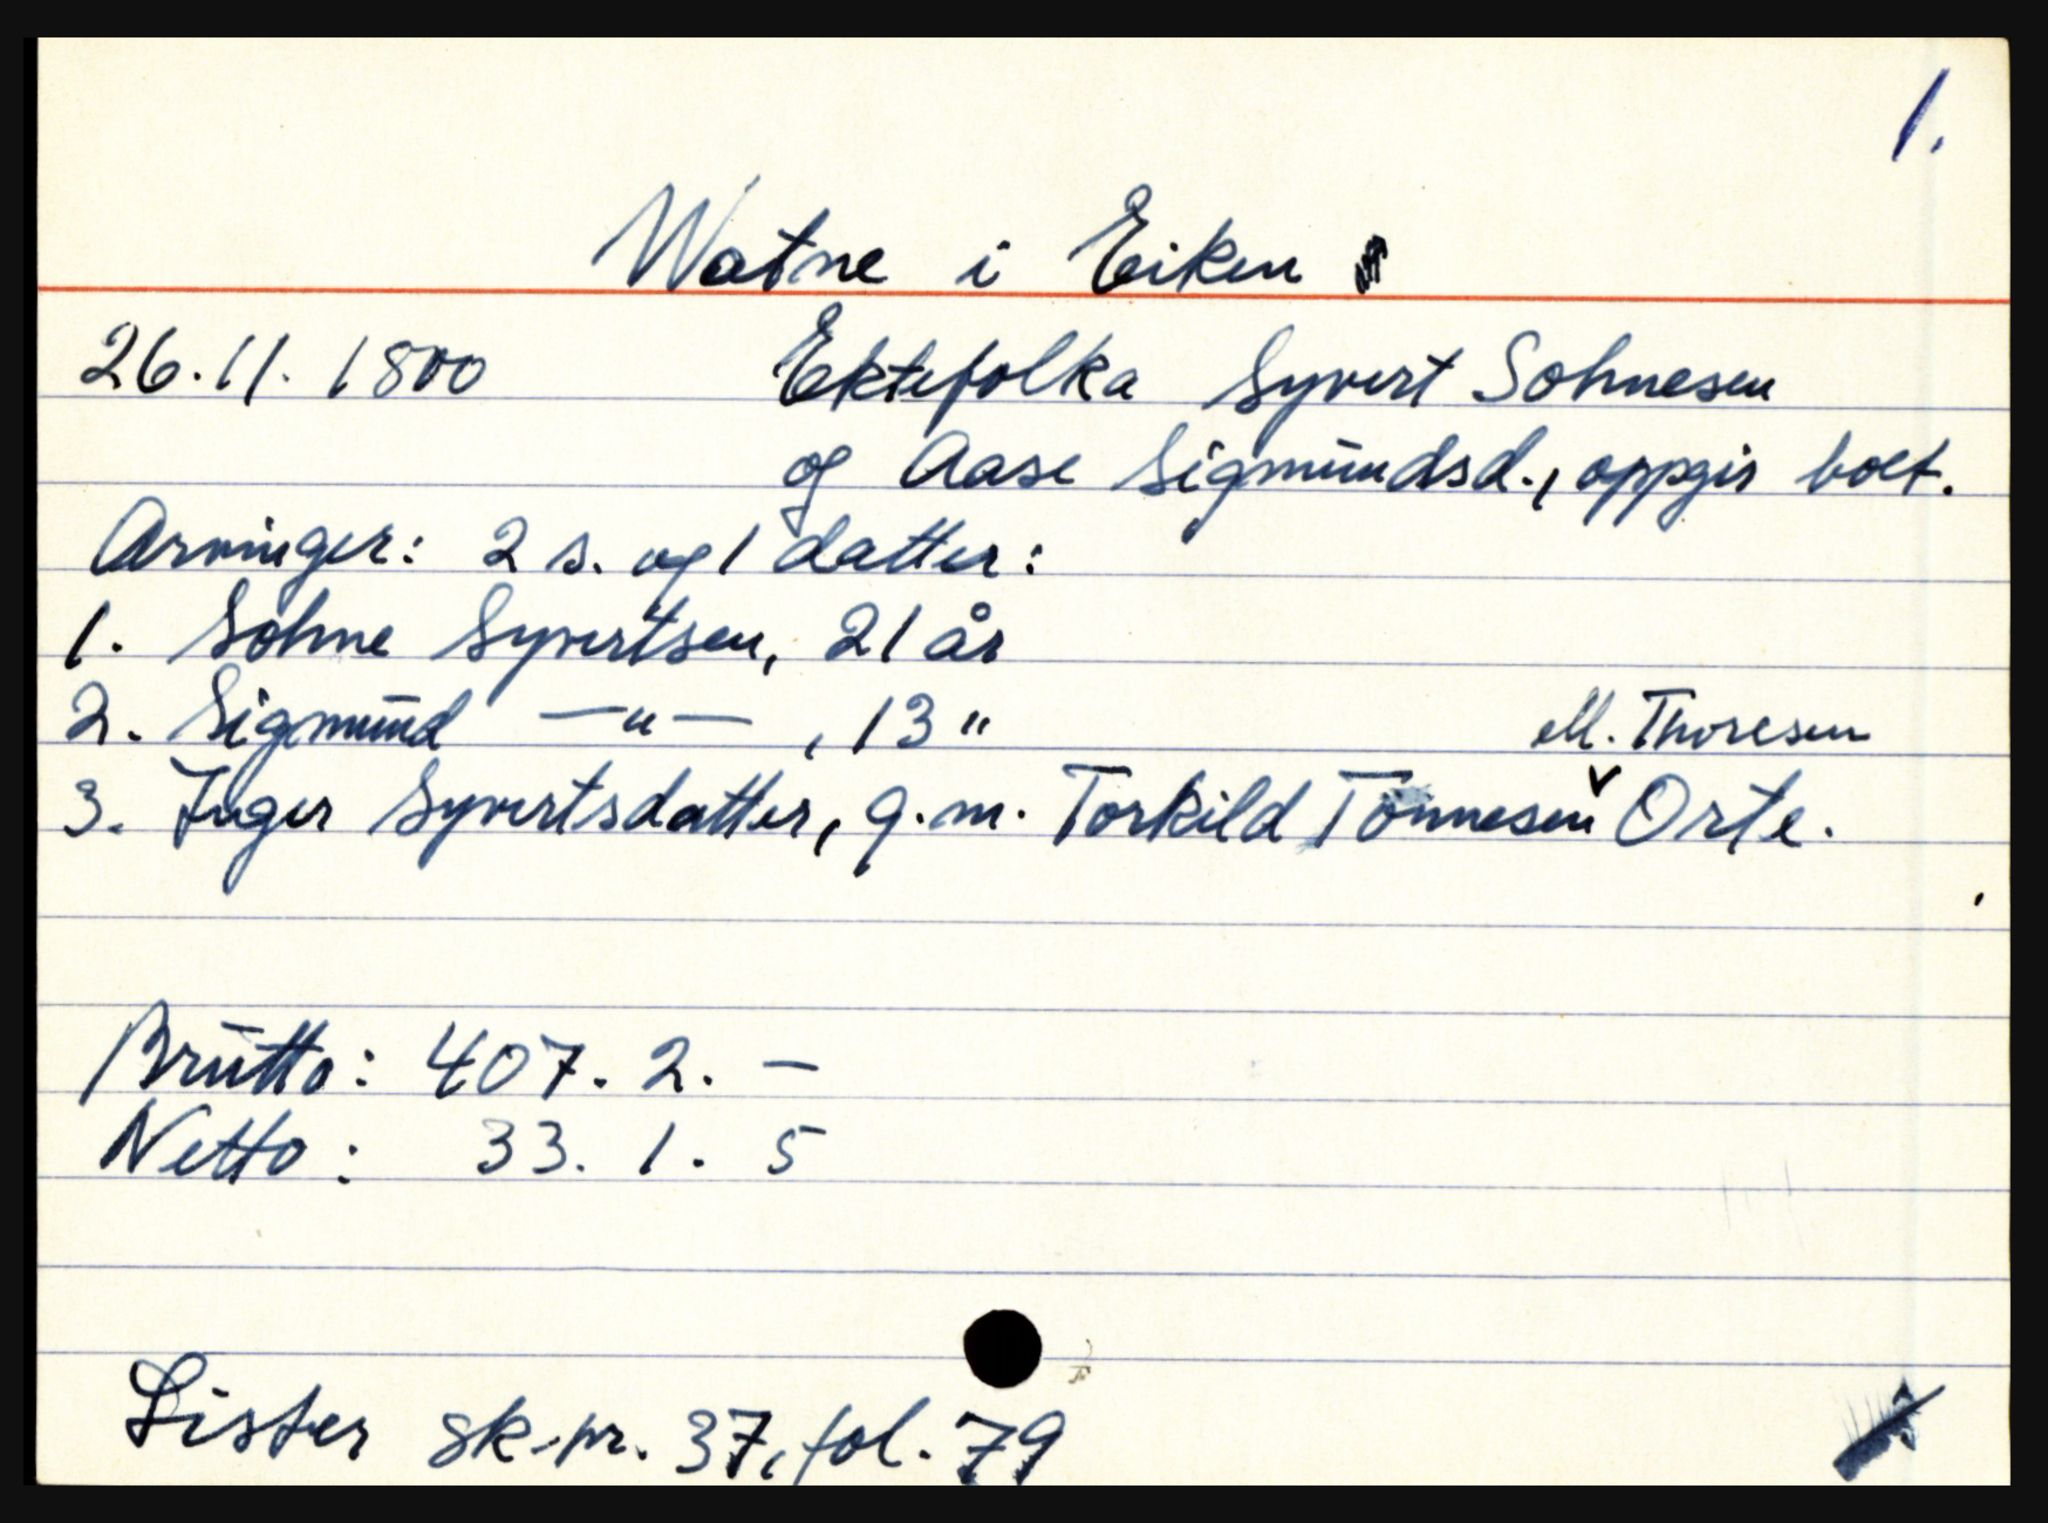 1.
Watne i Eiken
26.11.1800 Ektefolka Syvert Sohnesen
og Aase Sigmundsd., oppgir boet.
Arvinger: 2 s. og 1 datter:
1. Sohne Syvertsen, 21 år
2. Sigmund —"—, 13 "
ell. Thoresen
3. Inger Syvertsdatter, g.m. Torkild Tönnesen v Orte.
Brutto: 407. 2. —
Netto: 33. 1. 5
Lister sk.pr. 37, fol. 79